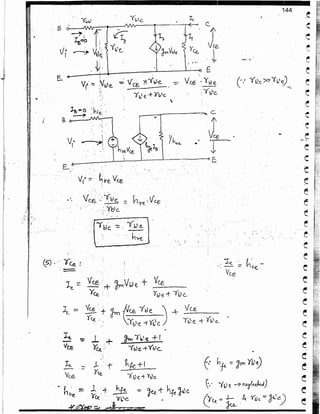 144
B rbb' rb'c Ic C
IB=0 I3 I2 I1
Vi Vb'e rb'e gmVb'e rce VCE
E E
Vi = Vb'e = VCE × rb'e / (rb'e + rb'c) = VCE · rb'e / rb'c (∵ rb'c >> rb'e)
IB=0 hie C
B
Vi hreVCE hfeIB 1/hoe VCE
E E
Vi = hre VCE
∴ VCE · rb'e / rb'c = hre · VCE
rb'c = rb'e / hre
(5) rce :
Ic / VCE = hoe
Ic = VCE / rce + gm Vb'e + VCE / (rb'e + rb'c)
Ic = VCE / rce + gm (VCE rb'e / (rb'e + rb'c)) + VCE / (rb'e + rb'c)
Ic / VCE = 1 / rce + (gm rb'e + 1) / (rb'e + rb'c)
Ic / VCE = 1 / rce + (hfe + 1) / (rb'e + rb'c) (∵ hfe = gm rb'e)
(∵ rb'e → neglected)
hoe = 1 / rce + hfe / rb'c = gce + hfe gb'c (rce = 1 / gce & rb'c = gb'c)